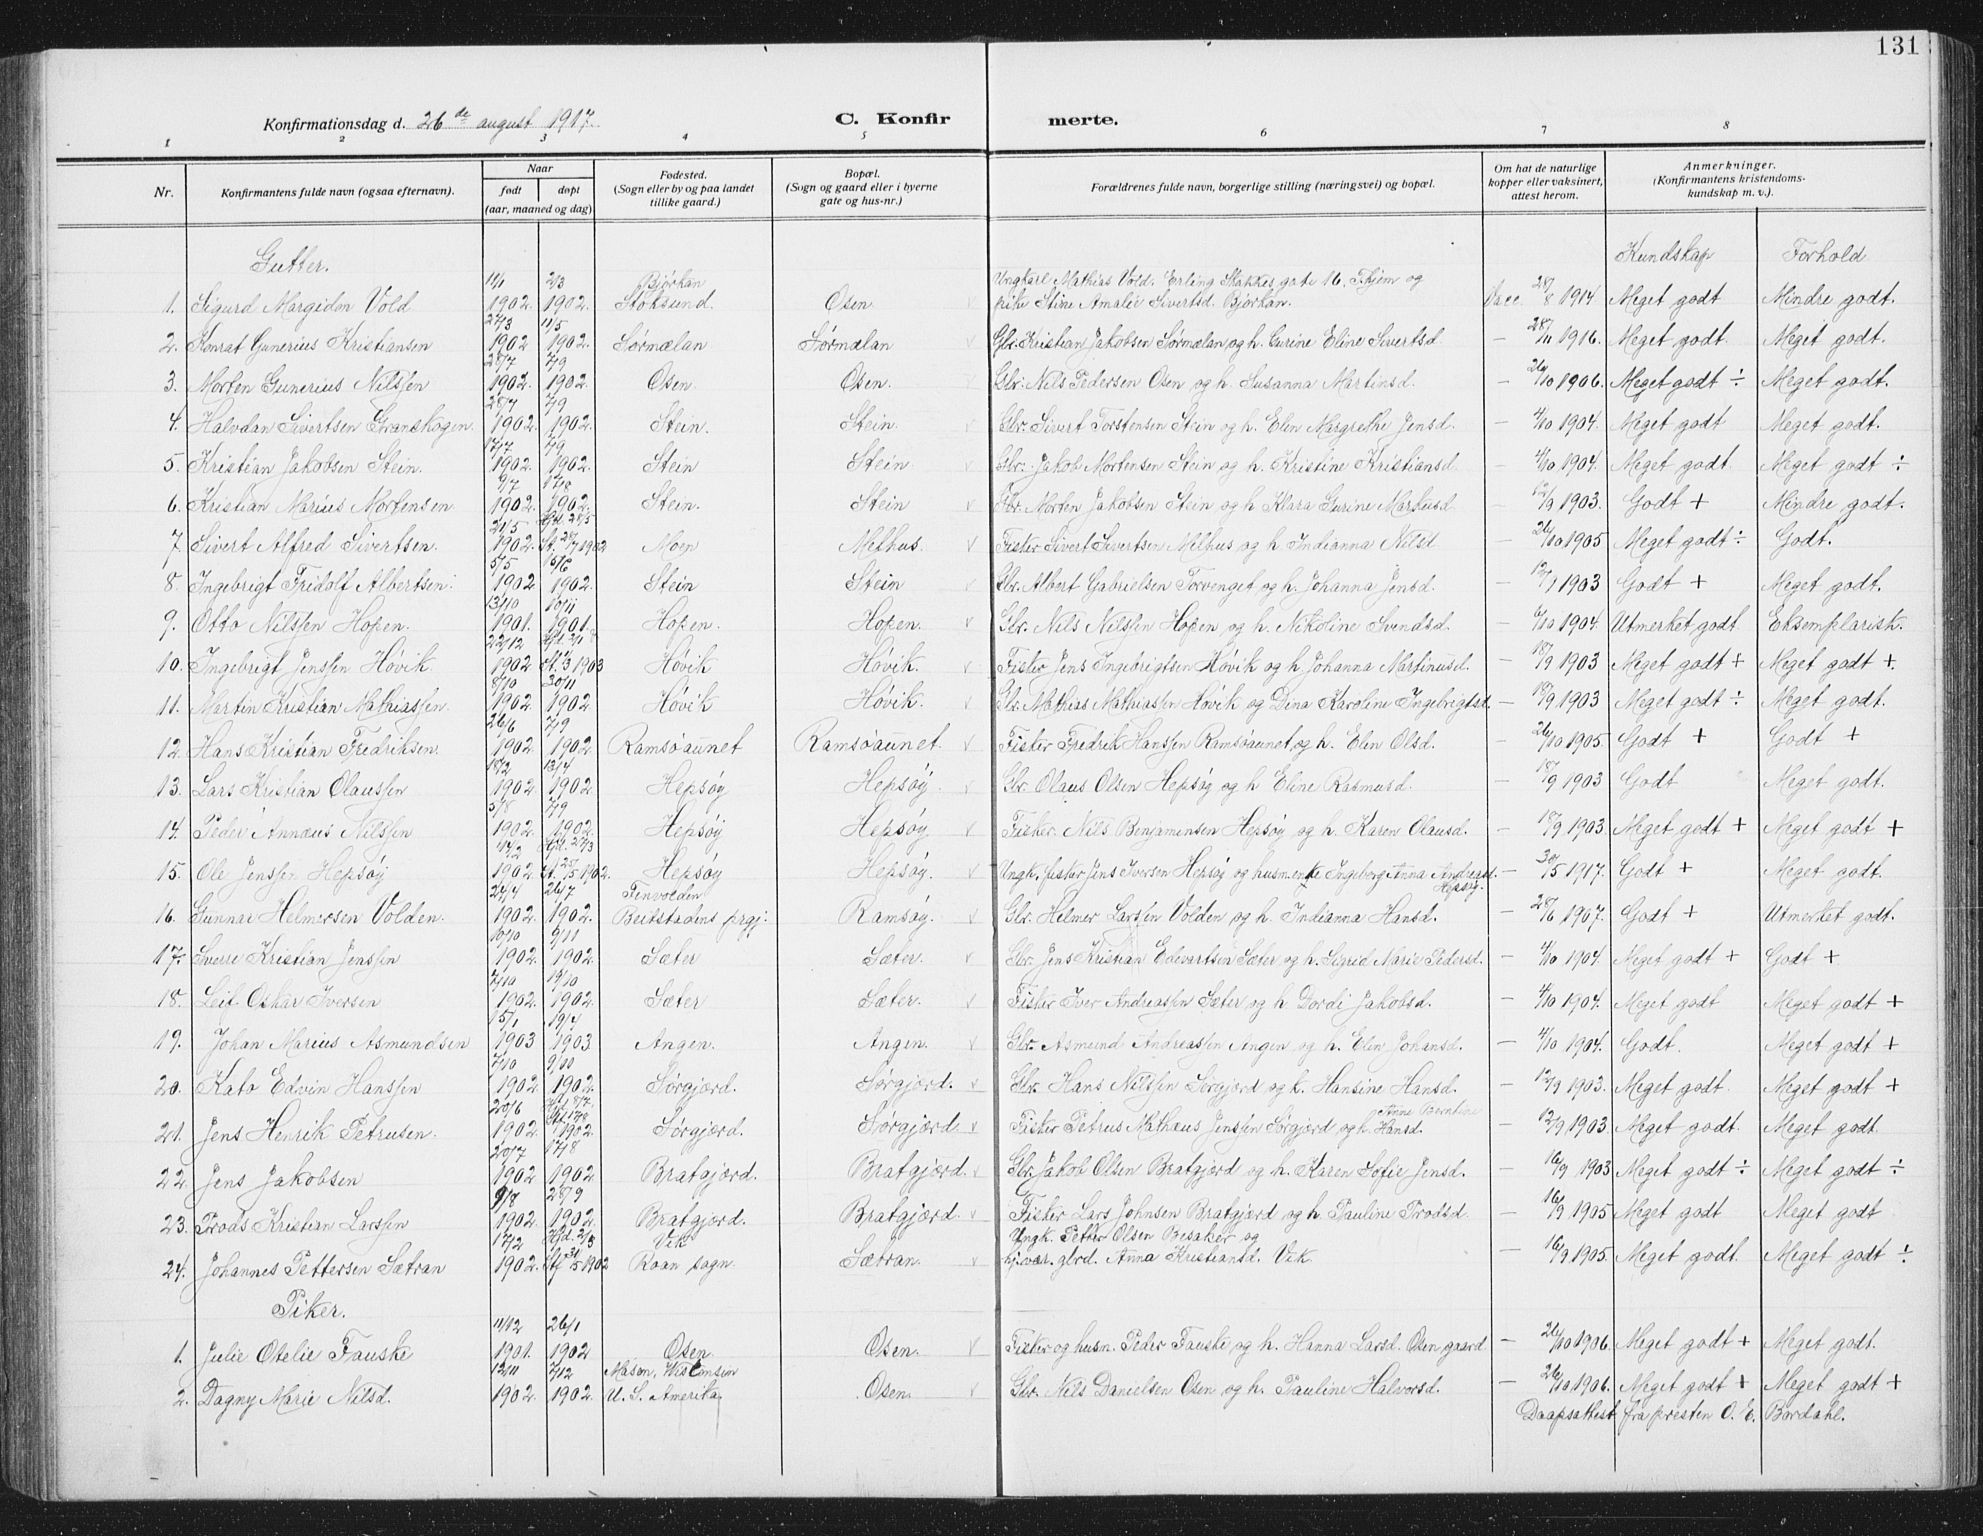 131
Konfirmationsdag d. 26 de august 1917. C. Konfirmerte.
1 2 3 4 5 6 7 8
Nr. Konfirmantens fulde navn (ogsaa efternavn). Naar født døpt (aar, maaned og dag) Fødested. (Sogn eller by og paa landet tillike gaard.) Bopæl. (Sogn og gaard eller i byerne gate og hus-nr.) Forældrenes fulde navn, borgerlige stilling (næringsvei) og bopæl. Om hat de naturlige kopper eller vaksinert, attest herom. Anmerkninger. (Konfirmantens kristendoms-kundskap m. v.).
Gutter. Kundskap Forhold
1. Sigurd Margidon Vold 11/1 1902. 2/3 1902. Bjørkan Stoksund. Osen. Ungkarl Mathias Vold. Erling Skakkes gate 16, Thjem og pike Stine Amalie Sivertsd. Bjørkan. Vacc. 28/8 1914 Meget godt Mindre godt.
2. Konrat Gunerius Kristiansen 27/3 1902 11/5 1902. Sørmælan Sørmælan Gbr. Kristian Jakobsen Sørmælan og h. Gurine Eline Sivertsd. — 1916. Meget godt. Meget godt.
3. Morten Gunerius Nilssen 28/7 1902. 7/9 1902. Osen Osen. Gbr. Nils Pedersen Osen og h. Susanna Martinsd. — 26/10 1906. Meget godt ÷ Meget godt.
4. Halvdan Sivertsen Granskogen 28/7 1902. 7/9 1902. Stein. Stein. Gbr. Sivert Torstensen Stein og h. Elen Margrethe Jensd. — 4/10 1904. Meget godt Meget godt.
5. Kristian Jakobsen Stein. 17/7 1902. 7/9 1902. Stein Stein Gbr. Jakob Mortensen Stein og h. Kristine Kristiansd. — 4/10 1904. Meget godt Meget godt ÷
6. Kristian Marius Mortensen 9/7 1902. 17/8 1902. Stein. Stein Gbr. Morten Jakobsen Stein og h Klara Gurine Markusd — 12/9 1903. Godt + Mindre godt.
7. Sivert Alfred Sivertsen. 21/5 1902. Hjd. 28/5 St. 1902 Moen Melhus. Fisker Sivert Sivertsen Melhus og h Indianna Nilsd — 26/10 1905 Meget godt ÷ Godt.
8. Ingebrigt Fridolf Albertsen. 5/5 1902 15/6 1902. Stein Stein Gbr. Albert Gabrielsen Torvenget og h. Johanna Jensd. — 1903 Godt + Meget godt.
9. Otto Nilssen Hopen. 13/10 1901. 10/11 1901. Hopen. Hopen. Gbr. Nils Nilssen Hopen og h. Nikoline Svendsd. — 6/10 1904. Utmerket godt Eksemplarisk.
10. Ingebrigt Jenssen Høvik 22/12 1902 1903 Høvik Høvik. Fisker Jens Ingebrigtsen Høvik og h Johanna Martinusd. — 18/9 1903 Meget godt + Meget godt +.
11. Martin Kristian Mathiassen. 8/10 1902. 30/11 1902. Høvik Høvik. Gbr. Mathias Mathiassen Høvik og Dina Karoline Ingebrigtsd. — 18/9 1903 Meget godt ÷ Meget godt.
12. Hans Kristian Fredriksen. 26/6 1902. 7/9 1902. Ramsøaunet Ramsøaunet. Fisker Fredrik Hanssen Ramsøaunet og h. Elen Olsd. — 26/10 1905 Godt + Godt +
13. Lars Kristian Olaussen 18/2 1902 13/4 1902. Hepsøy Hepsøy. Gbr. Olaus Olsen Hepsøy og h Eline Rasmusd. — 18/9 1903 Godt Meget godt.
14. Peder Annæus Nilssen 5/8 1902. 7/9 1902. Hepsøy Hepsøy. Fisker. Nils Benjaminsen Hepsøy og h. Karen Olausd. — 18/9 1903. Meget godt + Meget godt +
15. Ole Jenssen Hepsøy 18/2 1902 Hjd. 27/3 St. 25/5 1902. Hepsøy Hepsøy. Ungk. fisker Jens Iversen Hepsøy og husmenke Ingeborg Anna Andreasd. Hepsøy. — 30/5 1917. Godt + Meget godt.
16. Gunnar Helmersen Volden. 24/4 1902. 26/7 1902. Finvolden Beitstadens prgj. Ramsøy. Gbr. Helmer Larssen Volden og h. Indianna Hansd. — 28/6 1907. Godt + Utmerket godt.
17. Sverre Kristian Jenssen 10/10 1902. 9/11 1902. Sæter Sæter. Gbr. Jens Kristian Edvartsen Sæter og h. Sigrid Marie Pedersd. — 4/10 1904. Meget godt + Godt +
18. Leif Oskar Iversen 7/10 1902. 19/10 1902. Sæter Sæter. Fisker Iver Andreassen Sæter og h Dordi Jakobsd. — 4/10 1904. Meget godt Meget godt +
19. Johan Marius Asmundsen 15/1 1903 19/4 1903 Angen. Angen. Gbr. Asmund Andreassen Angen og h. Elen Johansd. — 4/10 1904. Godt. Meget godt +
20. Kato Edvin Hanssen 7/10 1902. 1902. Sørgjærd. Sørgjerd. Gbr. Hans Nilssen Sørgjerd og h. Hansine Hansd. — 12/9 1903. Meget godt Meget godt +
21. Jens Henrik Petrusen. 20/6 1902. Hjd. 8/7 St. 17/8 1902. Sørgjærd. Sørgjerd. Fisker Petrus Mathæus Jenssen Sørgjerd og h. Anne Berntine Hansd. — 12/9 1903. Meget godt. Meget godt.
22. Jens Jakobsen 20/7 1902 17/8 1902 Bratgjærd. Bratgjærd. Gbr. Jakob Olsen Bratgjerd og h. Karen Sofie Jensd. — 16/9 1903 Meget godt ÷ Meget godt ÷
23. Trods Kristian Larssen 9/8 1902. 28/9 1902. Bratgjærd. Bratgjærd. Fisker Lars Johnsen Bratgjærd og h. Pauline Trodsd. — 16/9 1905 Meget godt Meget godt
24. Johannes Pettersen Sætran 17/2 1902. Hjd. 2/3 Stf. 31/5 1902 Vik Roan sogn. Sætran. Ungk. Petter Olsen Besaker og hjvær. gbrd. Anna Kristiansd. Vik. — 16/9 1905. Meget godt. Meget godt ÷
Piker.
1. Julie Otelie Fauske 11/12 1901. 26/1 1902 Osen. Osen. Fisker og husm. Peder Fauske og h. Hanna Larsd. Osen gaard — 26/10 1906. Meget godt + Meget godt.
2. Dagny Marie Nilsd. 12/11 1902. 7/12 1902. Mason, Wisconsin U. S. Amerika. Osen. Gbr. Nils Danielsen Osen og h. Pauline Halvorsd. — 26/10 1906. Meget godt + Meget godt +
Daapsattest fra presten O. E. Bordahl.